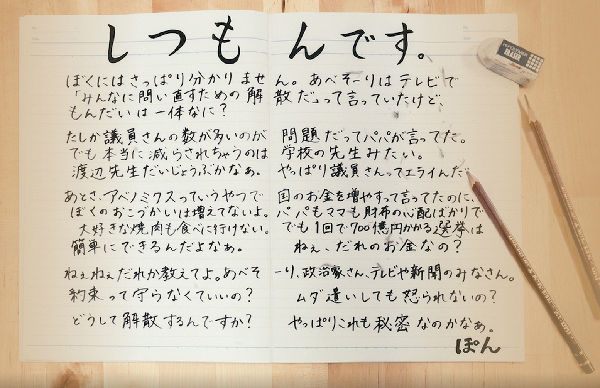 しつもんです。
ぼくにはさっぱり分かりません。あべそーりはテレビで
「みんなに問い直すための解散だ」って言っていたけど、
もんだいは一体なに？
たしか議員さんの数が多いのが問題だってパパが言ってた。
でも本当に減らされちゃうのは学校の先生みたい。
渡辺先生だいじょうぶかなぁ。やっぱり議員さんってエライんだ、
あとさ、アベノミクスっていうやつで国のお金を増やすって言ってたのに、
ぼくのおこづかいは増えてないよ。パパもママも財布の心配ばかりで
大好きな焼肉も食べに行けない。でも1回で700億円かかる選挙は
簡単にできるんだよなぁ。ねぇ、だれのお金なの？
ねぇねぇだれか教えてよ。あべそーり、政治家さん、テレビや新聞のみなさん。
約束って守らなくていいの？ムダ遣いしても怒られないの？
どうして解散するんですか？やっぱりこれも秘密なのかなぁ。
ぽん